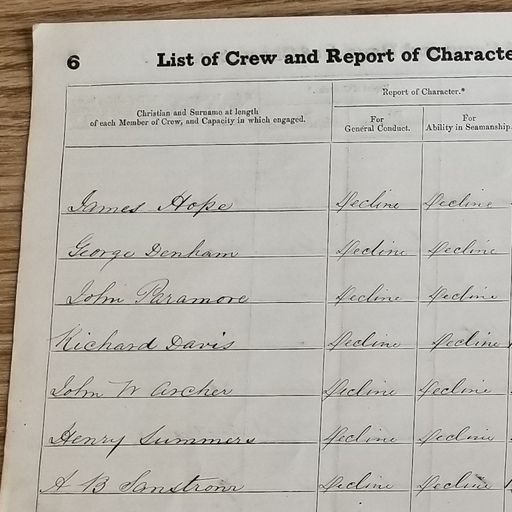 6 List of Crew and Report of Characte
Report of Character.*
Christian and Surname at length
of each Member of Crew, and Capacity in which engaged.
For
General Conduct.
For
Ability in Seamanship.
James Hope Decline Decline
George Denham Decline Decline
John Paramore Decline Decline
Richard Davis Decline Decline
John W Archer Decline Decline
Henry Summers Decline Decline
A B Decline Decline